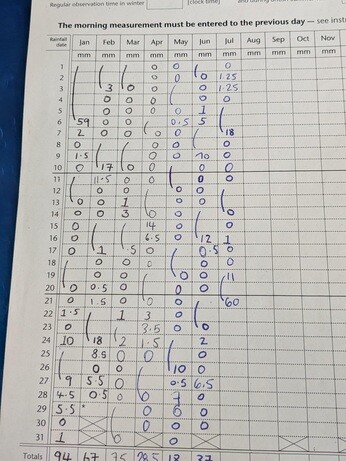 Regular observation time in winter (clock time)
The morning measurement must be entered to the previous day – see
Rainfall date Jan Feb Mar Apr May Jun Jul Aug Sep Oct Nov
mm mm mm mm mm mm mm mm mm mm mm
1 0 0 0
2 0 0 0 1.25
3 3 0 0 0 0 1.25
4 0 0 0 0 0 0
5 0 0 0 0 1
6 59 0 0 0 0.5 5
7 2 0 0 0 18
8 0 0 0 0
9 1.5 0 0 10 0
10 0 17 0 0 0 0
11 11.5 0 0 0 0
12 0 0 0 0
13 0 0 1 0 0
14 0 0 3 0 0 0
15 0 14 0 0
16 0 6.5 0 12 1
17 0 1 .5 0 0 0.5 0
18 0 0 0 0 0 0
19 0 0 0 0 0 11
20 0 0.5 0 0 0
21 0 1.5 0 0 0 60
22 1.5 1 3 0
23 0 3.5 0 0
24 10 18 2 1.5 2
25 8.5 0 0 0
26 0 0 10 0
27 9 5.5 0 0.5 6.5
28 4.5 0.5 0 0 0
29 5.5 * 0 0 0 0
30 0 0 0 0
31 1 0 0
Totals 94 67 18